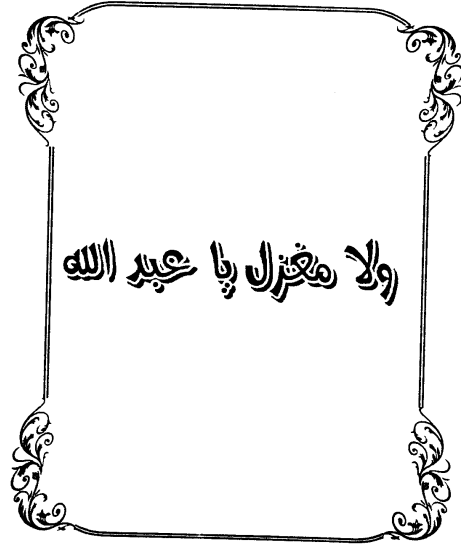 ولا مغزل يا عبد الله